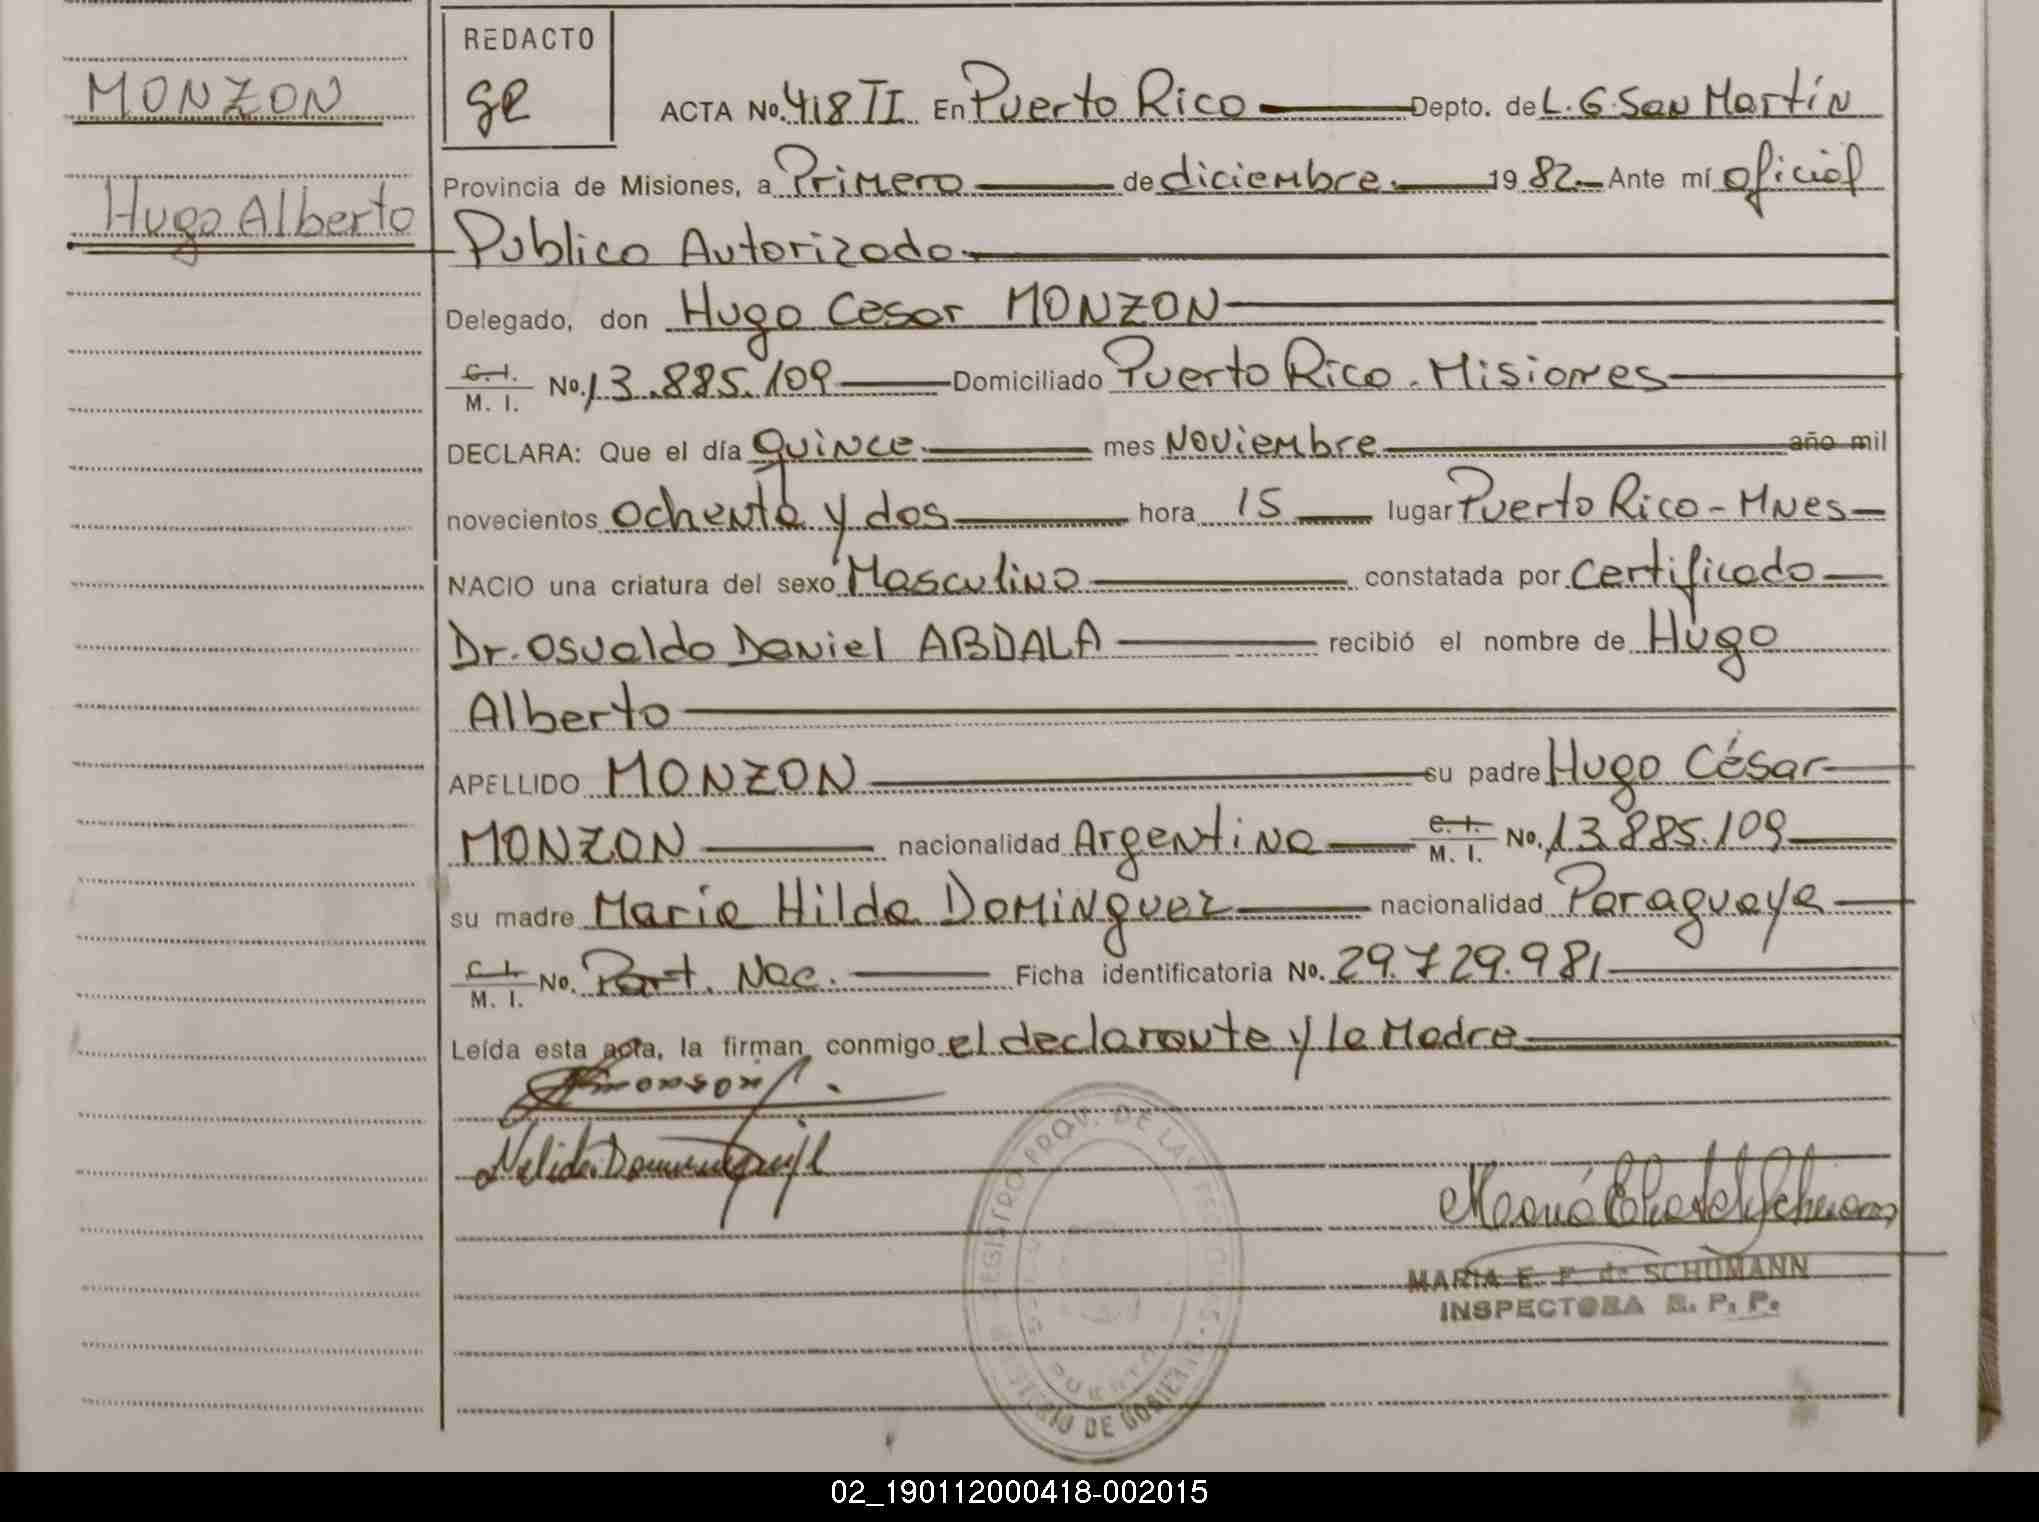 MONZON
Hugo Alberto
REDACTO
GR
ACTA No. 418 II En Puerto Rico Depto. de L. G. San Martín
Provincia de Misiones, a Primero de diciembre 1982 Ante mí oficial
Publico Autorizado
Delegado, don Hugo Cesar MONZON
C. I.
M. I. No. 13.885.109 Domiciliado Puerto Rico. Misiones
DECLARA: Que el día quince mes Noviembre año mil
novecientos ochenta y dos hora 15 lugar Puerto Rico - Mnes
NACIO una criatura del sexo Masculino constatada por certificado
Dr. Osvaldo Daniel ABDALA recibió el nombre de Hugo
Alberto
APELLIDO MONZON su padre Hugo César
MONZON nacionalidad Argentina C. I. M. I. No. 13.885.109
su madre Maria Hilda Dominguez nacionalidad Paraguaya
C. I.
M. I. No. Part. Nac. Ficha identificatoria No. 29.729.981
Leída esta acta, la firman conmigo el declarante y la Madre
REGISTRO PROV. DE LAS
DE GOBIERNO
MARIA E. F. de SCHUMANN
INSPECTORA R. P. P.
02_190112000418-002015